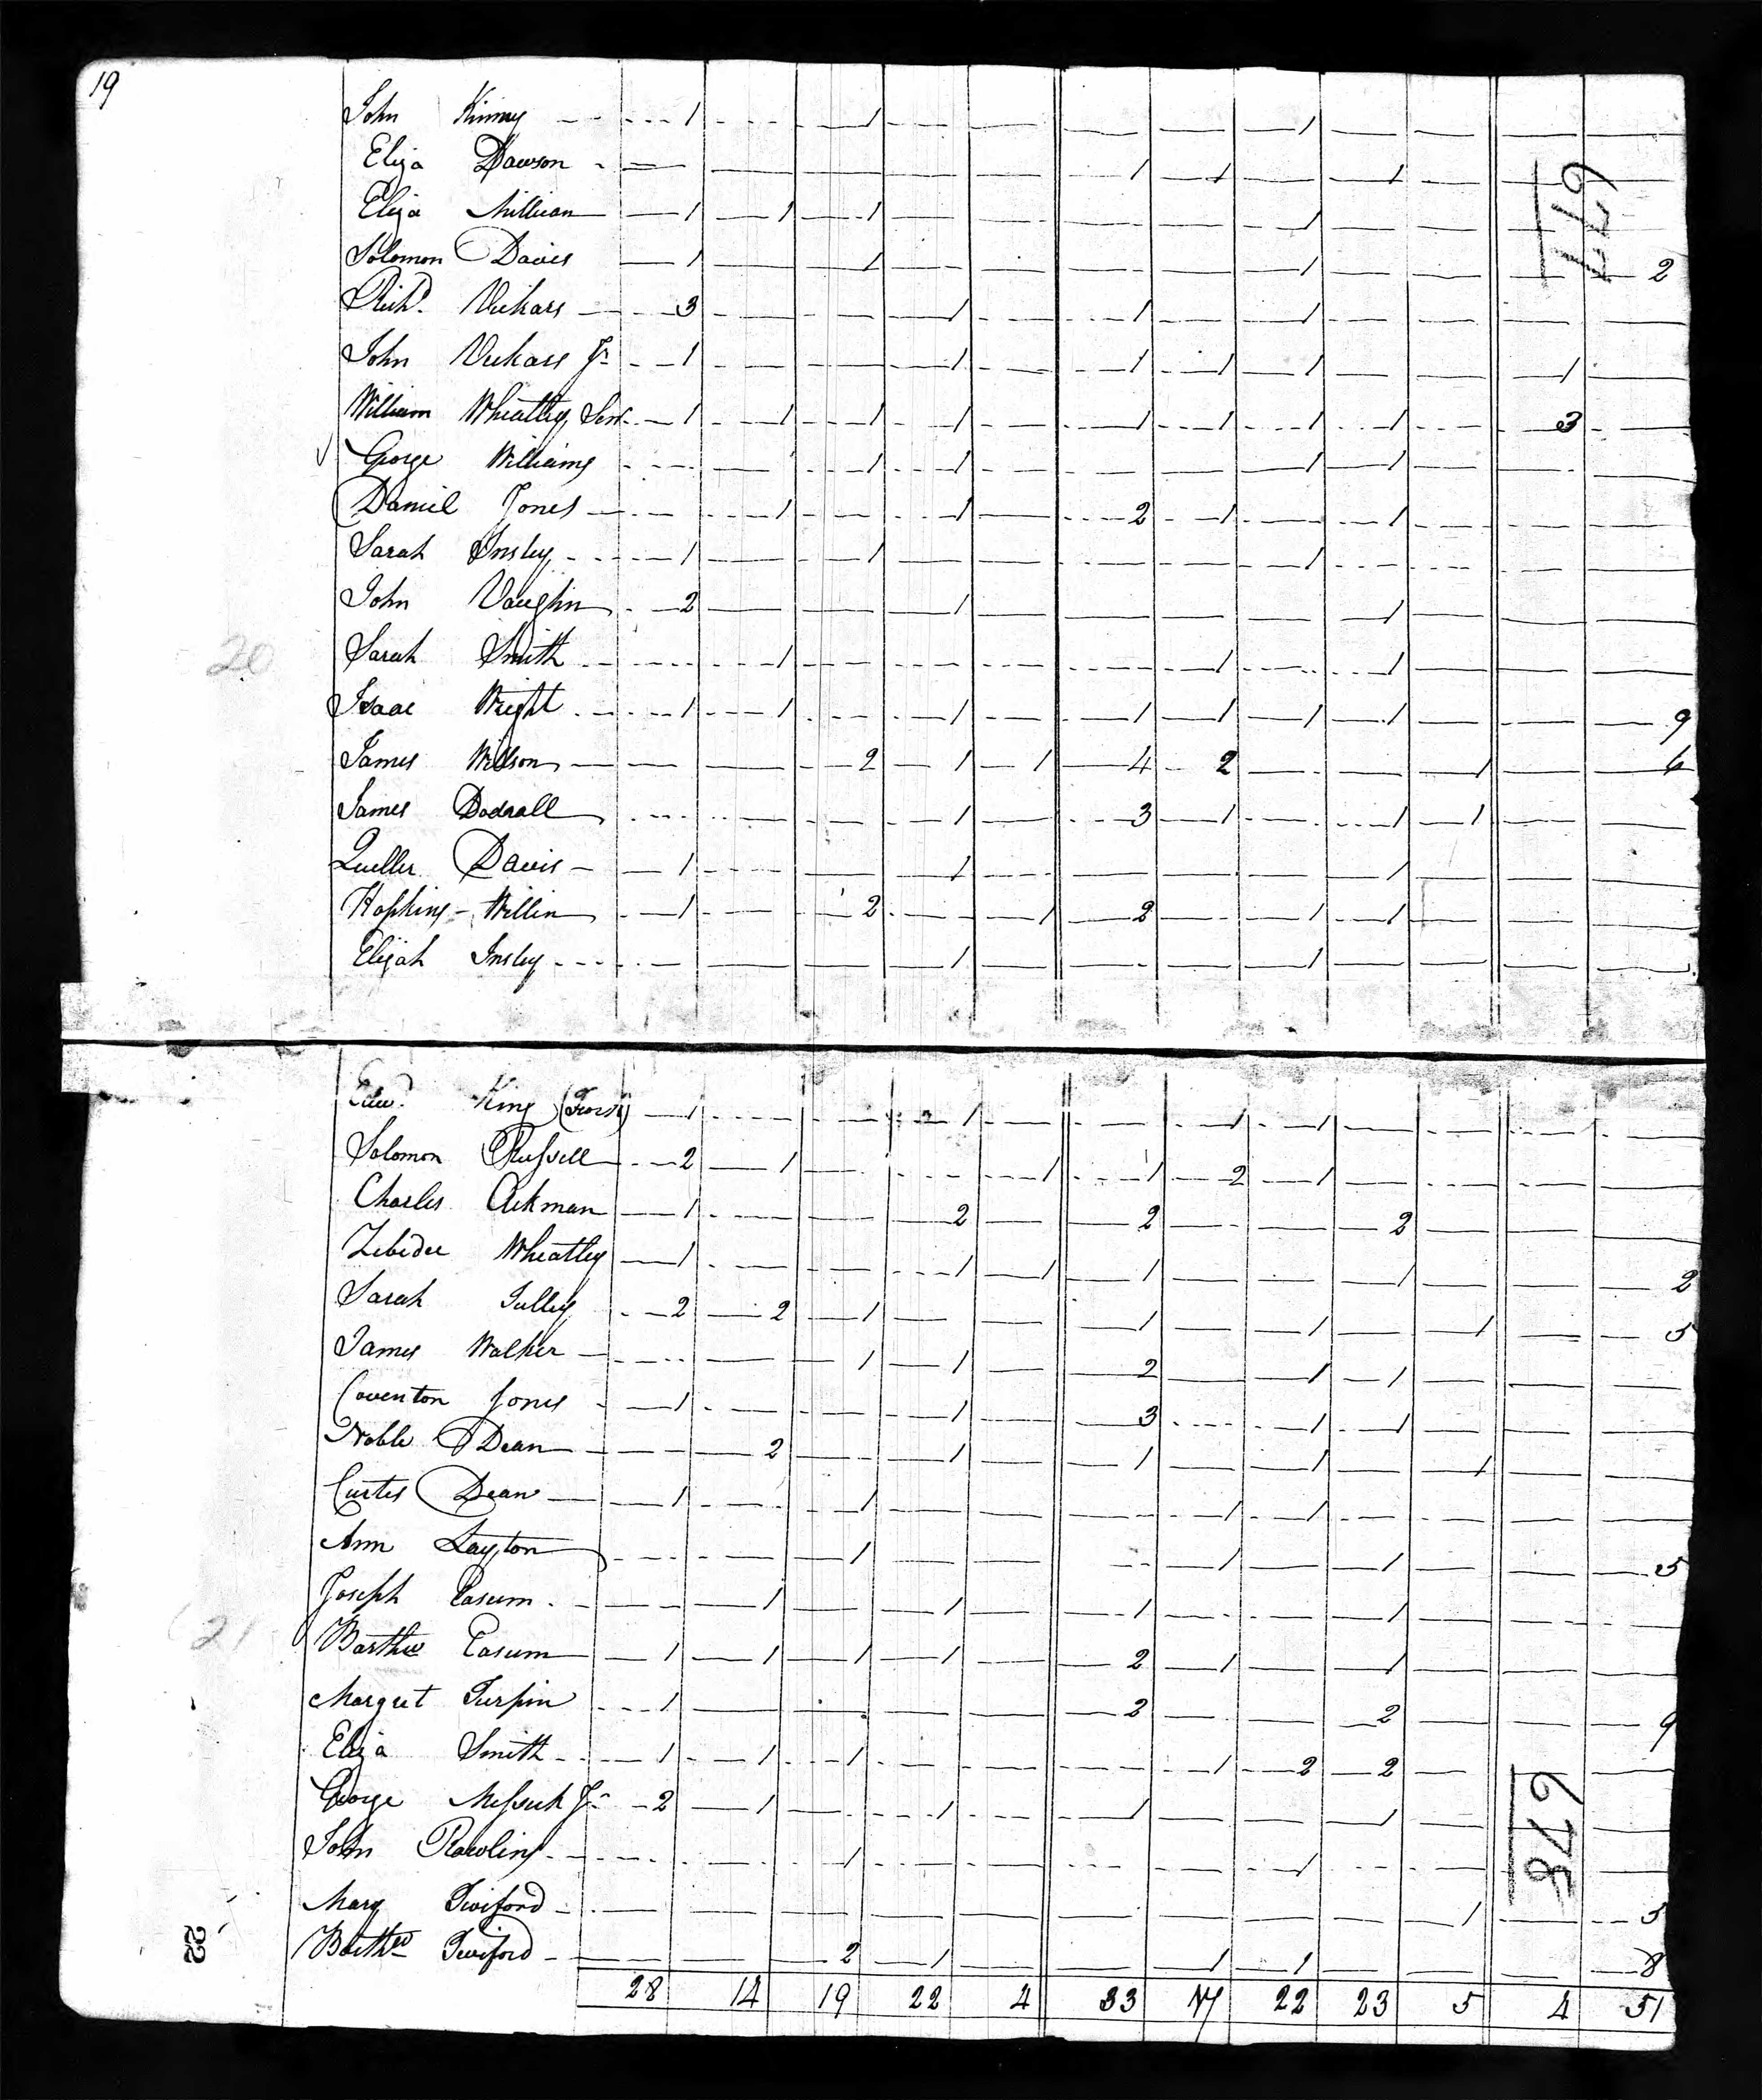 19
John Kinney 1 1 1
Eliza Dawson 1 1 1
Eliza Millican 1 1 1 1
Solomon Davis 1 1 1 2
Richd. Vickars 3 1 1 1
John Vickars Jr 1 1 1 1 1 1
William Wheatley, Senr. 1 1 1 1 1 1 1 1 3
George Williams 1 1 1 1
Daniel Jones 1 1 2 1 1
Sarah Insley 1 1 1
John Vaughn 2 1 1
20
Sarah Smith 1 1 1
Isaac Wright 1 1 1 1 1 1 1 9
James Willson 2 1 1 4 2 1 6
James Dodrall 1 3 1 1 1
Davis 1 1 1
Hopkins Willin 1 2 1 2 1 1
Elijah Insley 1 1
677
Edwd. King 1 1 1 1
Solomon Russell 2 1 1 1 2 1
Charles Ackman 1 2 2 2
Zebidee Wheatley 1 1 1 1 1 2
Sarah Tulley 2 2 1 1 1 1 5
James Walker 1 1 2 1 1
Coventon Jones 1 1 3 1 1
Noble Dean 2 1 1 1 1
Curtes Dean 1 1 1 1
Ann Layton 1 1 1 5
Joseph Easum 1 1 1 1
21
Barthw Easum 1 1 1 1 2 1 1
Margret Turpin 1 2 2 9
Eliza Smith 1 1 1 1 2 2
George Messick Jr 2 1 1 1 1
John Rawlins 1 1
Mary Twiford 1 5
Barthw Twiford 2 1 1 1 8
678
22
28 14 19 22 4 33 17 22 23 5 4 51